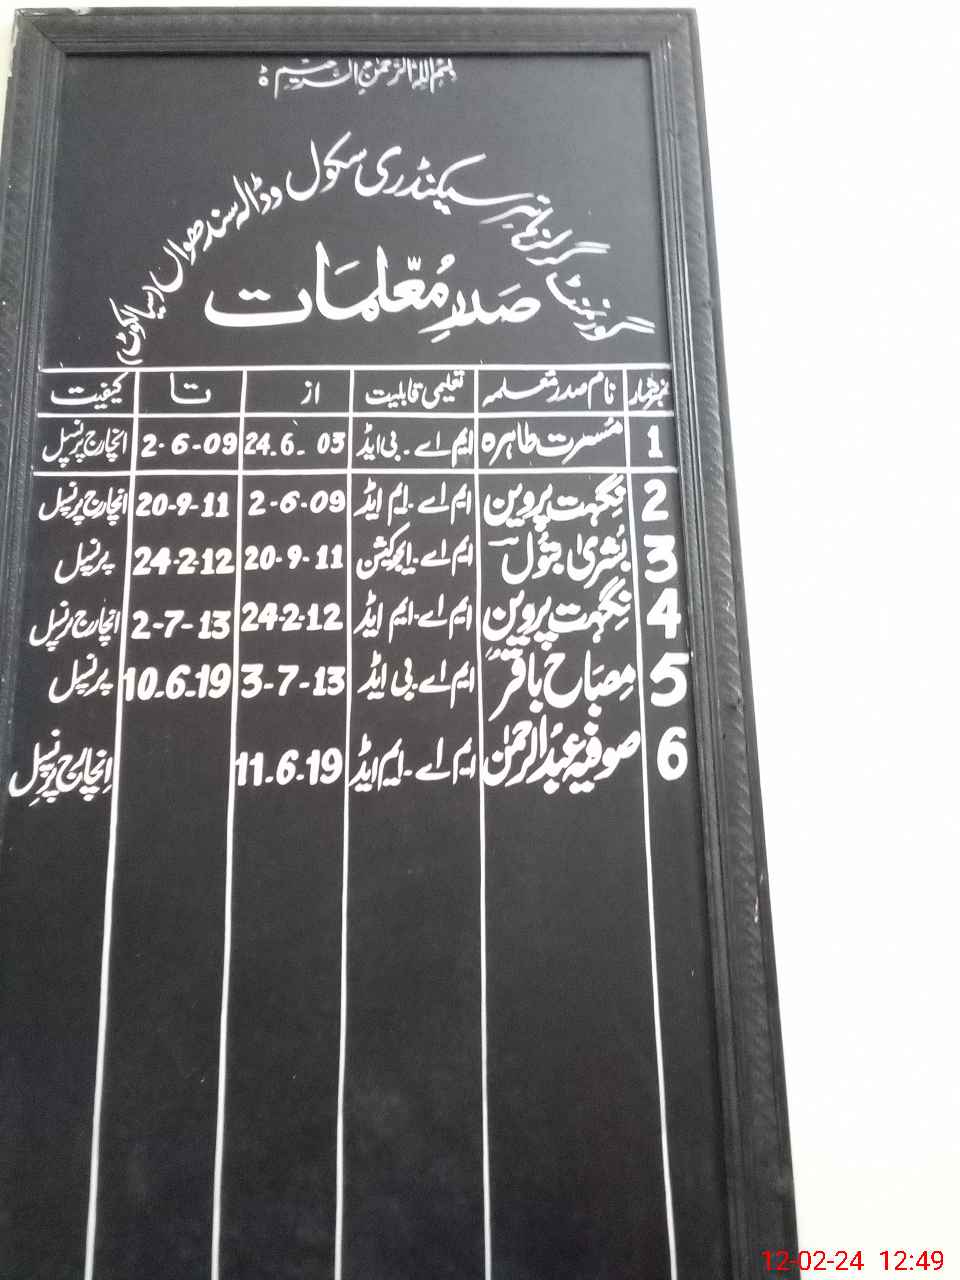 بسم اللہ الرحمٰن الرحیم ہ
گورنمنٹ گرلز ہائیر سیکنڈری سکول وڈالہ سندھواں (سیالکوٹ)
صدرِ معُلّمات
نمبر شمار نام صدر معلمہ تعلیمی قابلیت از تا کیفیت
1 مُسرت طاہرہ ایم اے۔بی ایڈ 24.6.03 2-6-09 انچارج پرنسپل
2 نگہت پروین ایم اے۔ایم ایڈ 2-6-09 20-9-11 انچارج پرنسپل
3 بُشریٰ بتول ایم اے۔ایجوکیشن 20-9-11 24-2-12 پرنسپل
4 نگہت پروین ایم اے۔ایم ایڈ 24-2-12 2-7-13 انچارج پرنسپل
5 مِصباح باقر ایم اے۔بی ایڈ 3-7-13 10.6.19 پرنسپل
6 صوفیہ عبدُالرحمٰن ایم اے۔ایم ایڈ 11.6.19 اِنچارج پرنسپل
12-02-24 12:49